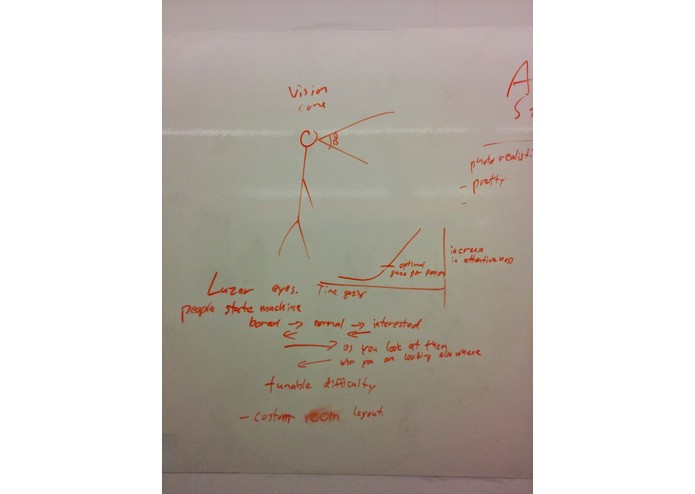 Vision
cone
A
S
photo realisti
- pretty
-
increase
in attentiveness
optimal
gaze per person
Time gazing
Lazer eyes.
people state machine
bored → normal → interested
← ←
→ as you look at them
← when you are looking elsewhere
tunable difficulty
- custom room layout.